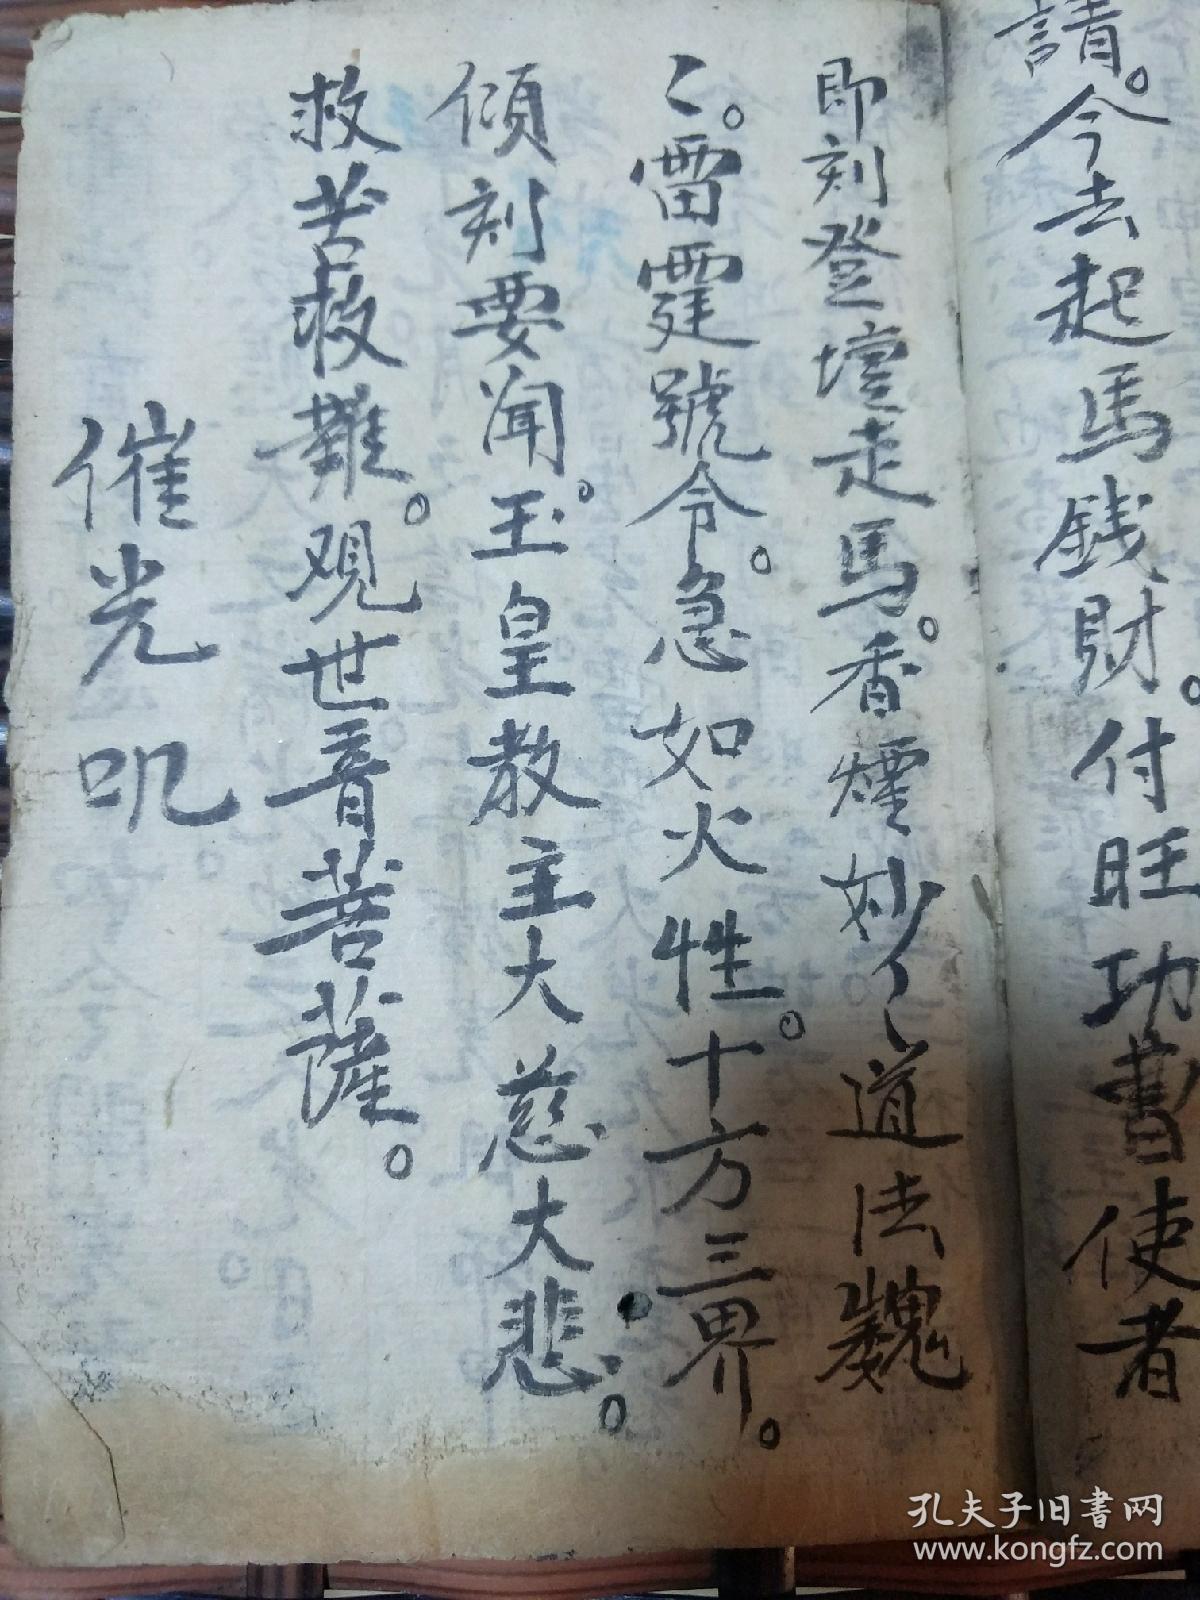 請。今去起馬銭財。付旺功曹使者
即刻登壇走馬。香煙妙〻道法巍
〻。雷霆號令。急如火性。十方三界。
傾刻要闻。玉皇教主大慈大悲。
救苦救難。观世音菩薩。
催光叽
孔夫子旧书网
www.kongfz.com